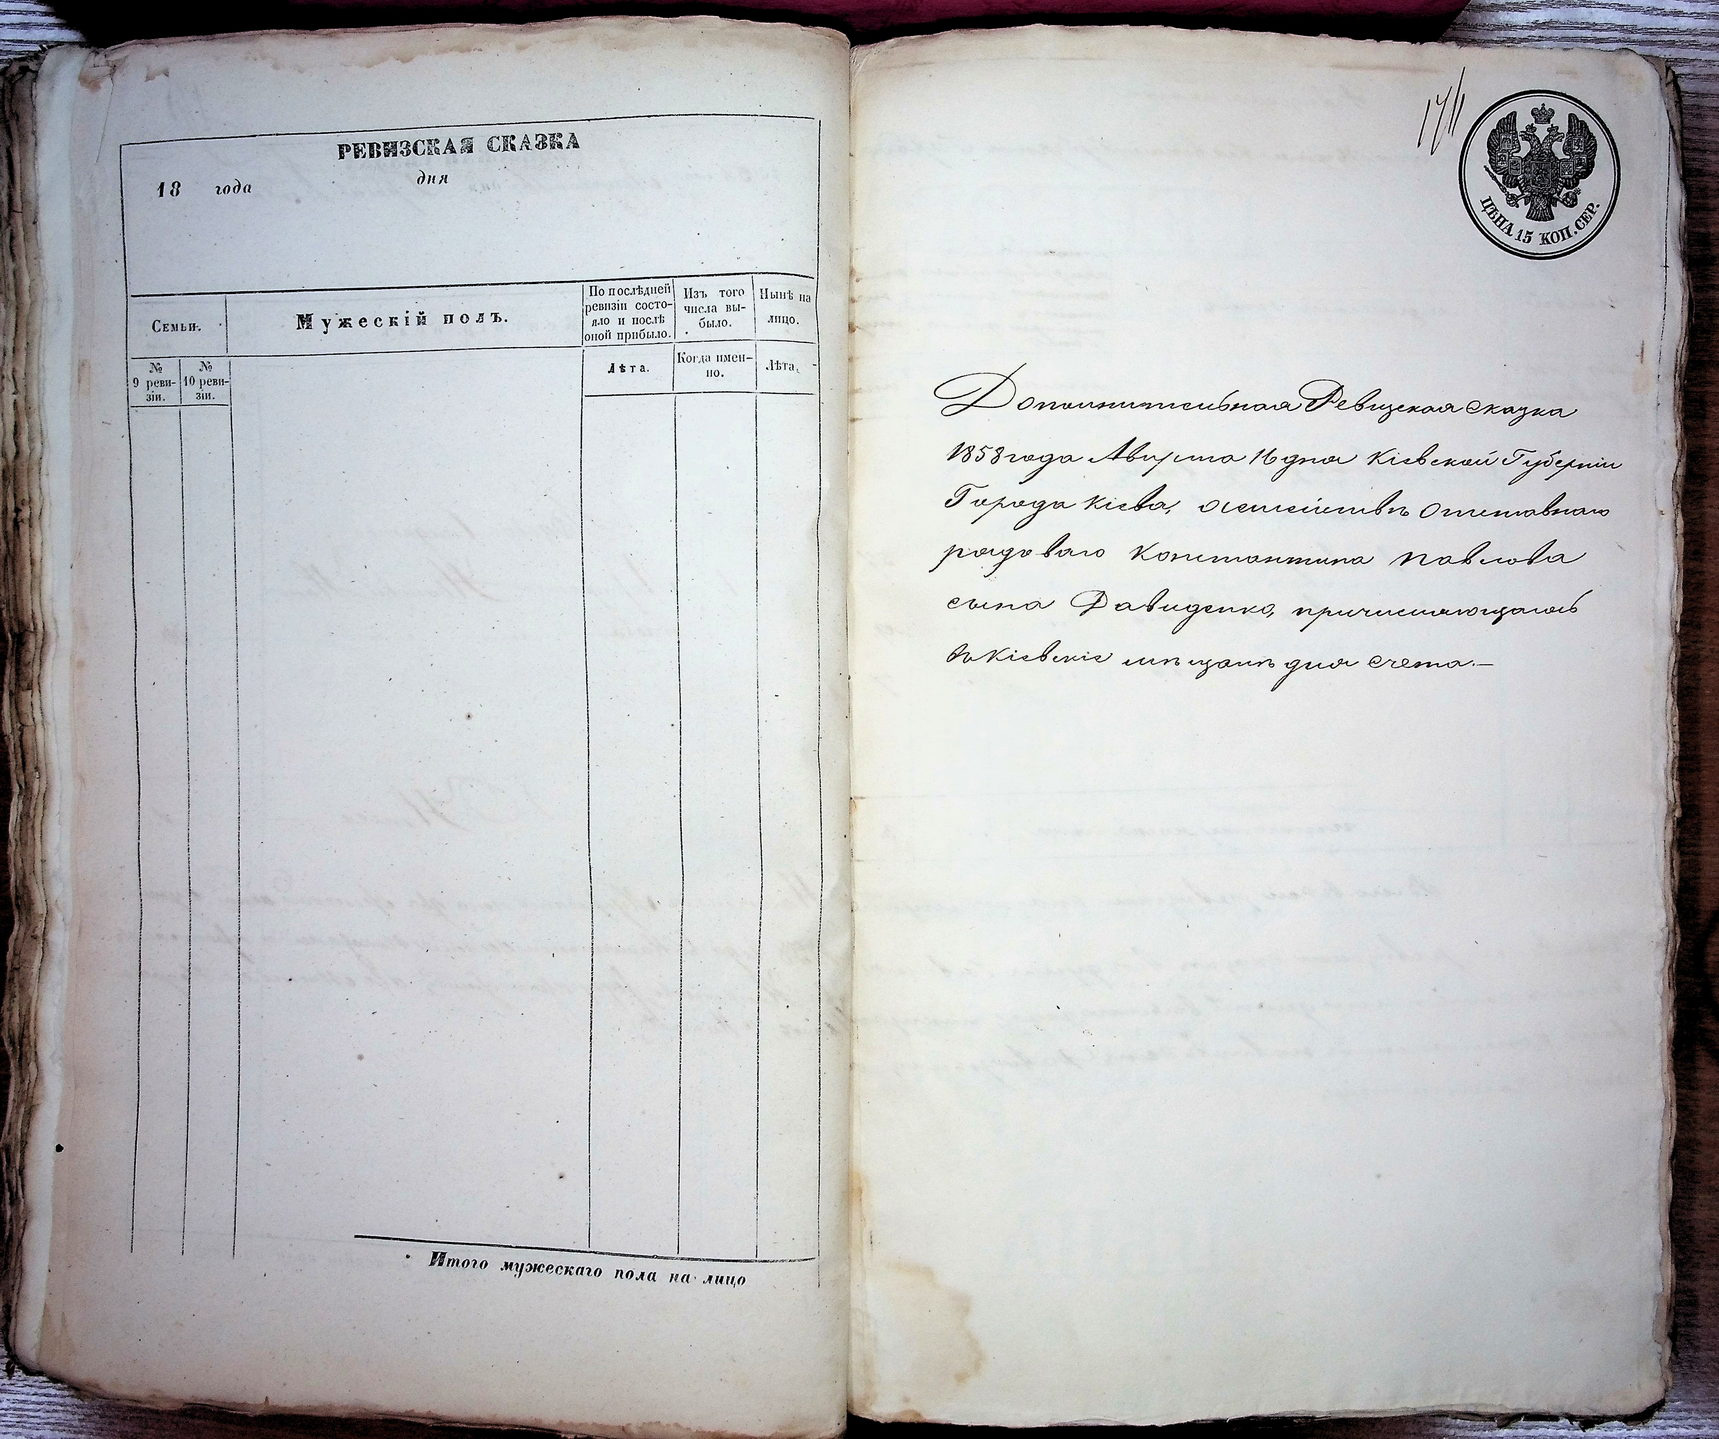 РЕВИЗСКАЯ СКАЗКА
18 года дня
Семьи.
Мужескій полъ.
По послѣдней
ревизіи состо-
яло и послѣ
оной прибыло.
Изъ того
числа вы-
было.
Нынѣ на
лицо.
№
9 реви-
зіи.
№
10 реви-
зіи.
Лѣта.
Когда имен-
но.
Лѣта.
Итого мужескаго пола на лицо
ЦѢНА 15 КОП. СЕР.
Дополнительная Ревизская сказка
1858 года Августа 16 дня Кіевской Губерніи
Города Кіева, о семействѣ отставнаго
рядоваго Константина Павлова
сына Давиденко, причисляющагось
въ Кіевскіе мѣщане для счета.—